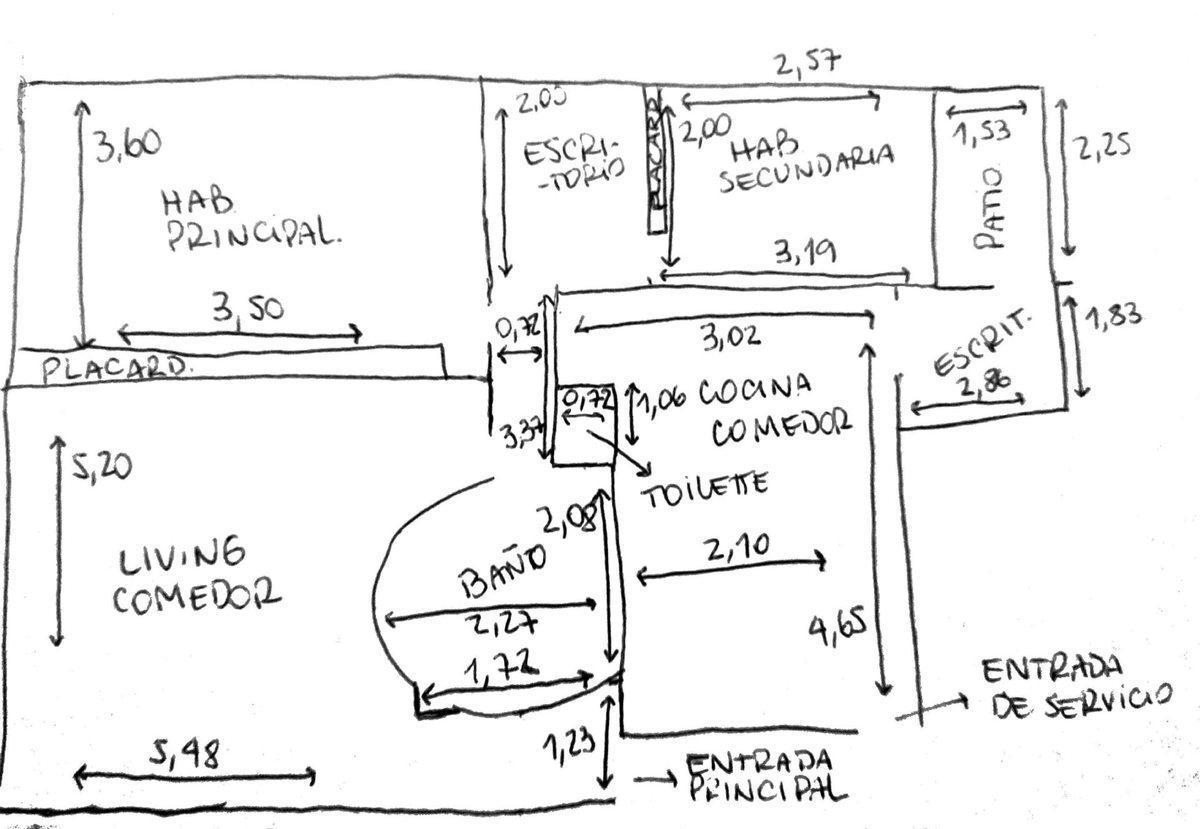 2,57
3,60
2,05
ESCRI-
-TORIO
PLACARD
2,00
HAB
SECUNDARIA
1,53
2,25
PATIO
HAB
PRINCIPAL.
3,19
3,50
0,72
3,02
ESCRIT.
1,83
PLACARD.
2,86
0,72
1,06
COCINA
COMEDOR
3,37
5,20
TOILETTE
2,08
BAÑO
2,10
LIVING
COMEDOR
2,27
4,65
1,72
ENTRADA
DE SERVICIO
1,23
5,48
ENTRADA
PRINCIPAL